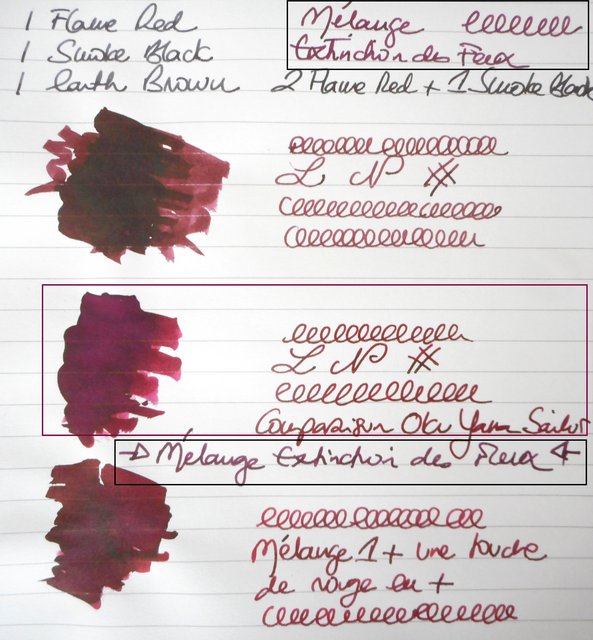 1 Flame Red
1 Smoke Black
1 Earth Brown
Mélange eeeeeeee
Extinction des Feux
2 Flame Red + 1 Smoke Black
L N
L N
Comparaison Oku Yama Sailor
→ Mélange Extinction des Feux ←
Mélange 1 + une touche
de rouge en +